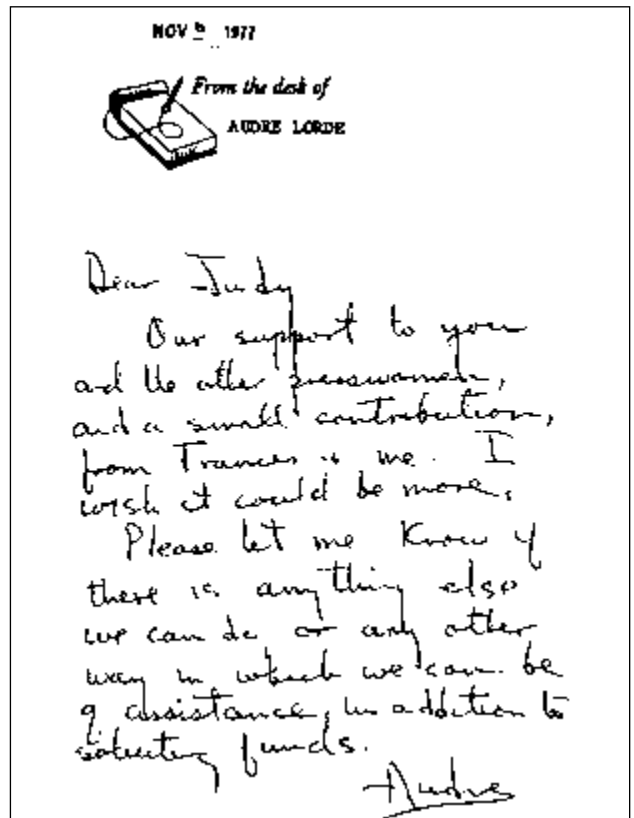 NOV 5 1977
From the desk of
AUDRE LORDE
Dear Judy
Our support to you
and the other presswomen,
and a small contribution,
from Frances & me. I
wish it could be more.
Please let me know if
there is anything else
we can do or any other
way in which we can be
of assistance, in addition to
soliciting funds.
Audre